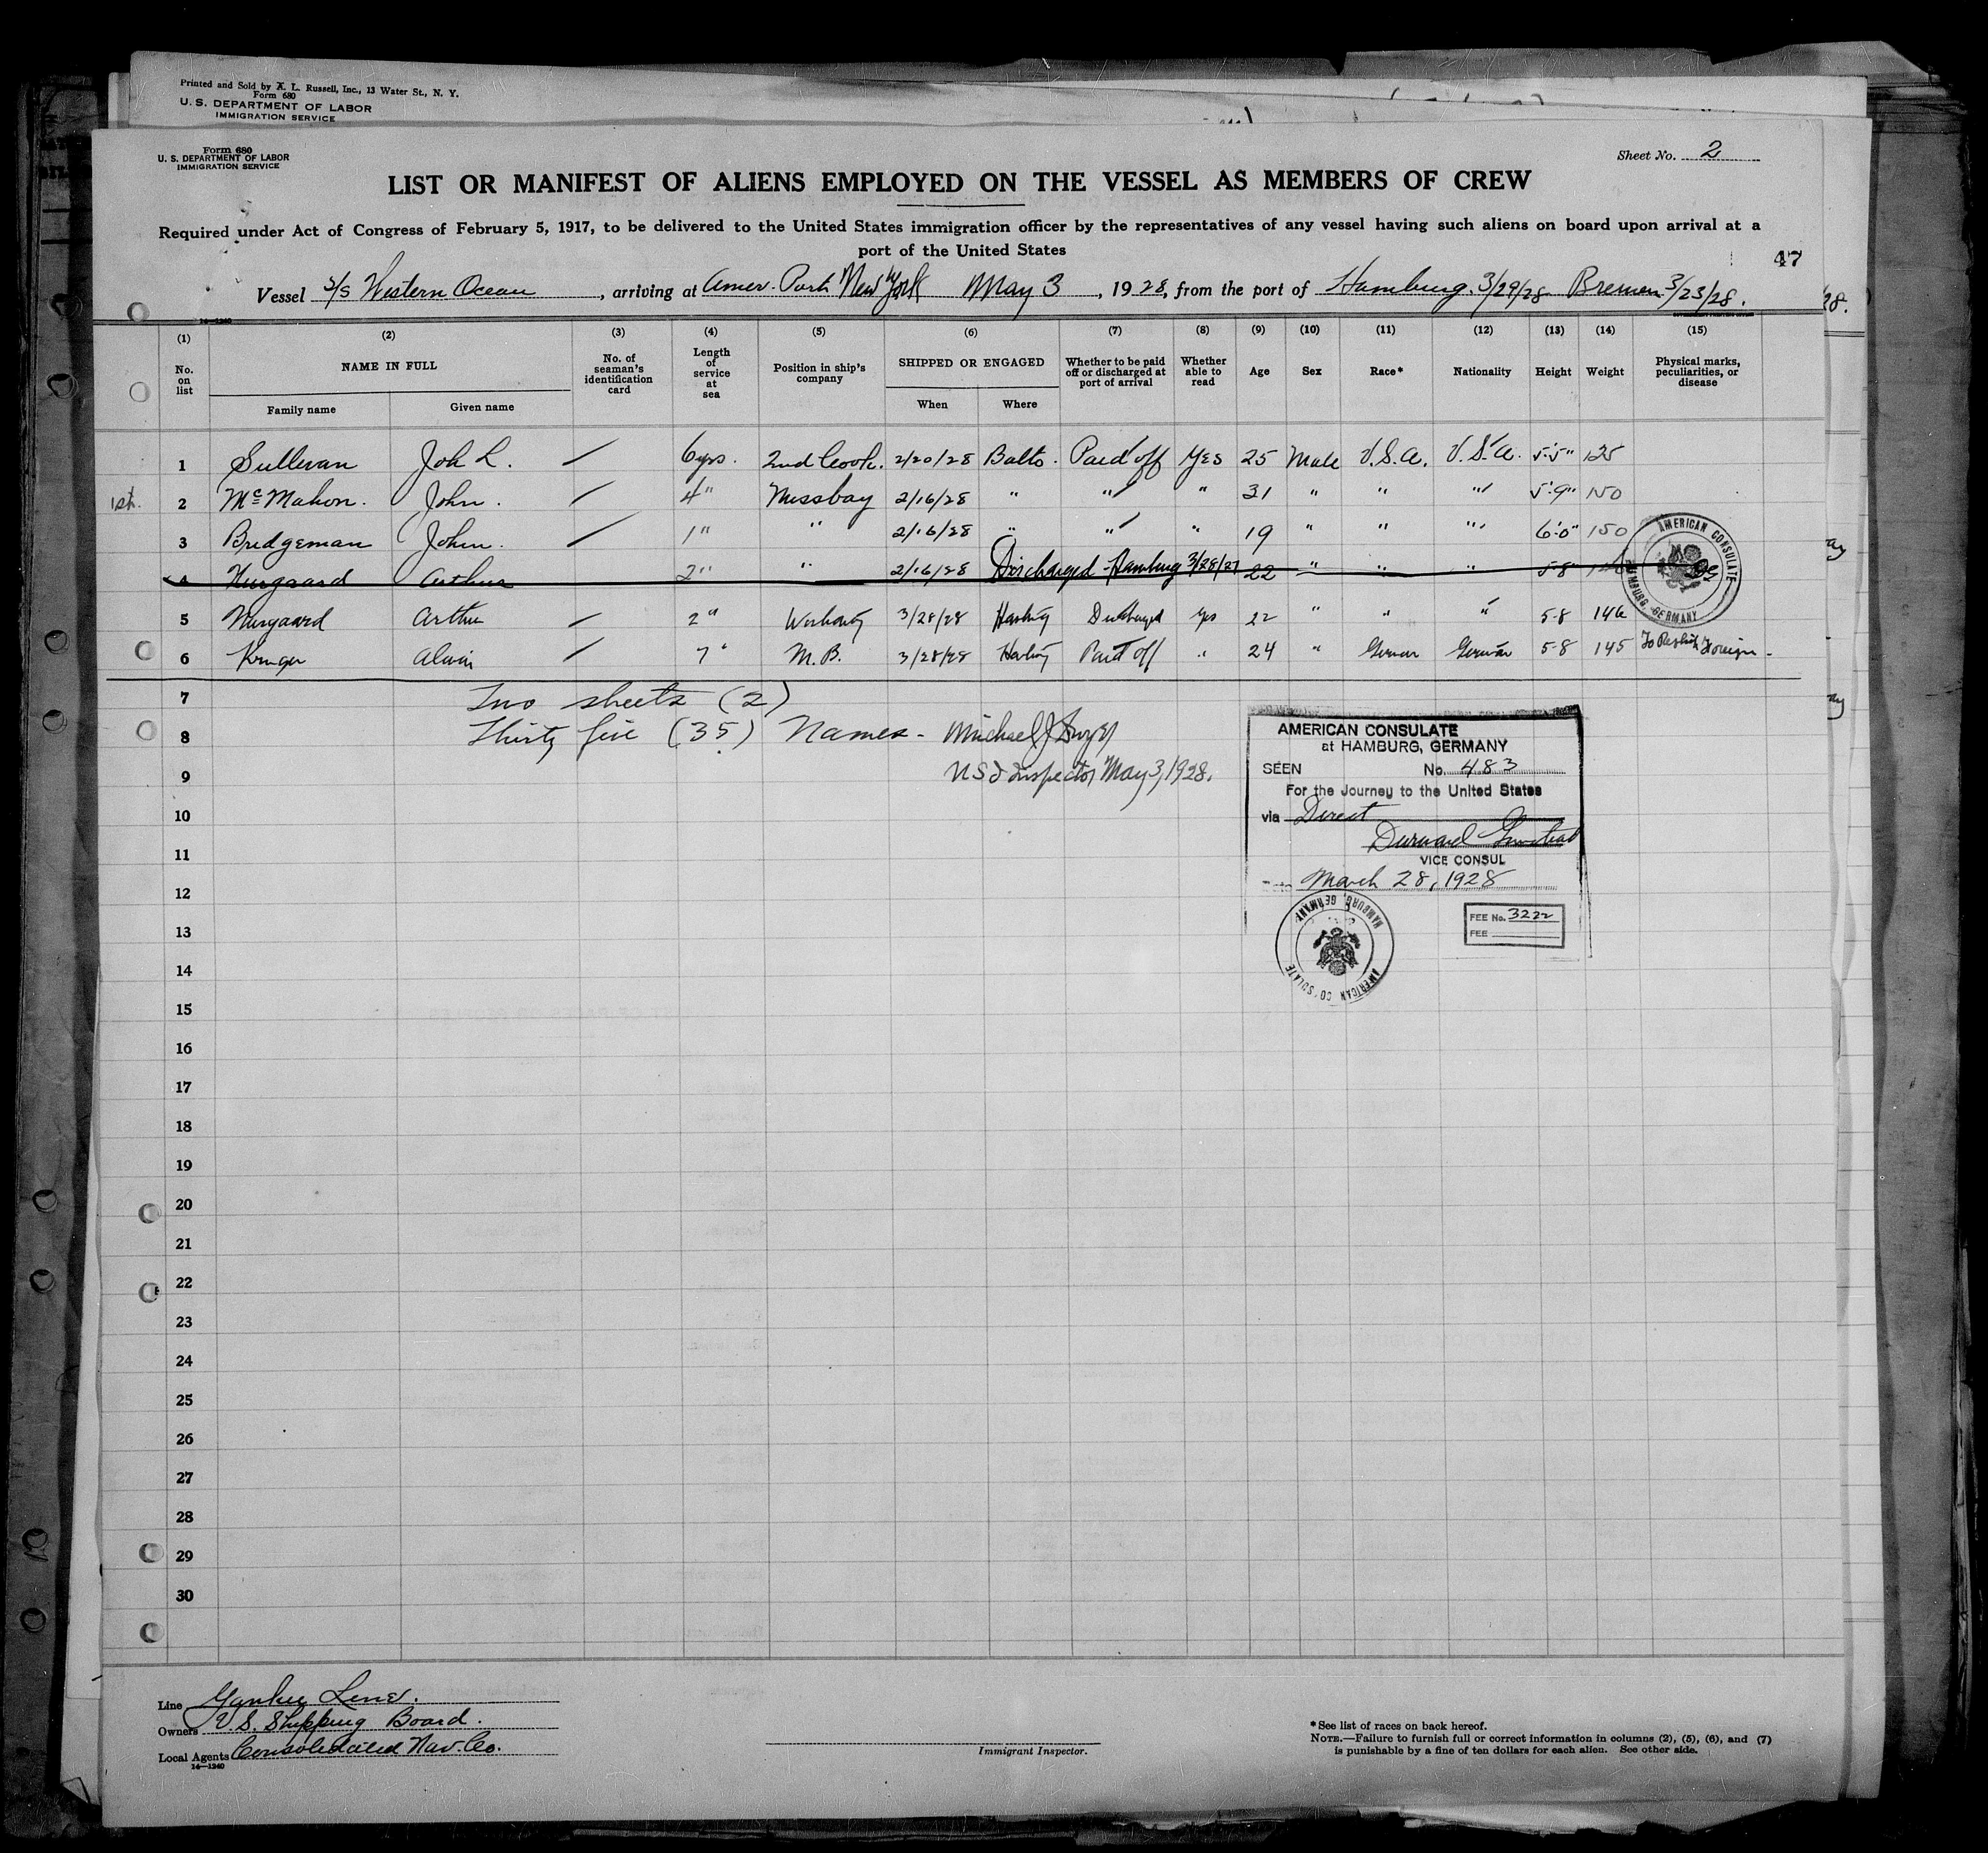 Printed and Sold by A. L. Russell, Inc., 13 Water St., N. Y.
Form 680
U. S. DEPARTMENT OF LABOR
IMMIGRATION SERVICE
Form 680
U. S. DEPARTMENT OF LABOR
IMMIGRATION SERVICE
Sheet No. 2
LIST OR MANIFEST OF ALIENS EMPLOYED ON THE VESSEL AS MEMBERS OF CREW
Required under Act of Congress of February 5, 1917, to be delivered to the United States immigration officer by the representatives of any vessel having such aliens on board upon arrival at a
port of the United States
47
Vessel S/S Western Ocean, arriving at Amer. Port New York May 3, 1928, from the port of Hamburg. 3/29/28 Bremen 3/23/28.
28.
14—1240
(1) (2) (3) (4) (5) (6) (7) (8) (9) (10) (11) (12) (13) (14) (15)
No. on list NAME IN FULL No. of seaman's identification card Length of service at sea Position in ship's company SHIPPED OR ENGAGED Whether to be paid off or discharged at port of arrival Whether able to read Age Sex Race* Nationality Height Weight Physical marks, peculiarities, or disease
Family name Given name When Where
1 Sullivan Joh L. / 6 yrs. 2nd Cook. 2/20/28 Balto. Paid off Yes 25 Male U.S.A. U.S.A. 5'-5" 125
1st. 2 McMahon. John. / 4 " Messboy 2/16/28 " " " 31 " " " 5'-9" 150
3 Bridgeman John. / 1 " " 2/16/28 " " " 19 " " " 6'-0" 150
4 Nurgaard Arthur 2 " " 2/16/28 Discharged Hamburg 3/28/27 22 " " " 5-8
5 Nurgaard Arthur / 2 " Workaway 3/28/28 Discharged Yes 22 " " " 5-8 146
6 Kruger Alwin / 7 " M.B. 3/28/28 Paid off " 24 " German German 5-8 145 To Reship Foreign -
AMERICAN CONSULATE
HAMBURG, GERMANY
7 Two sheets (2)
8 Thirty five (35) Names - Michael J Dwyer
9 U S I Inspector May 3, 1928.
AMERICAN CONSULATE
at HAMBURG, GERMANY
SEEN No. 483
For the Journey to the United States
via Direct
Durward
VICE CONSUL
Date March 28, 1928
HAMBURG, GERMANY
AMERICAN CO SULATE
FEE No. 3222
FEE
10
11
12
13
14
15
16
17
18
19
20
21
22
23
24
25
26
27
28
29
30
Line Yankee Line.
Owners U.S. Shipping Board.
Local Agents Consolidated Nav. Co.
14—1240
Immigrant Inspector.
* See list of races on back hereof.
NOTE.—Failure to furnish full or correct information in columns (2), (5), (6), and (7)
is punishable by a fine of ten dollars for each alien. See other side.